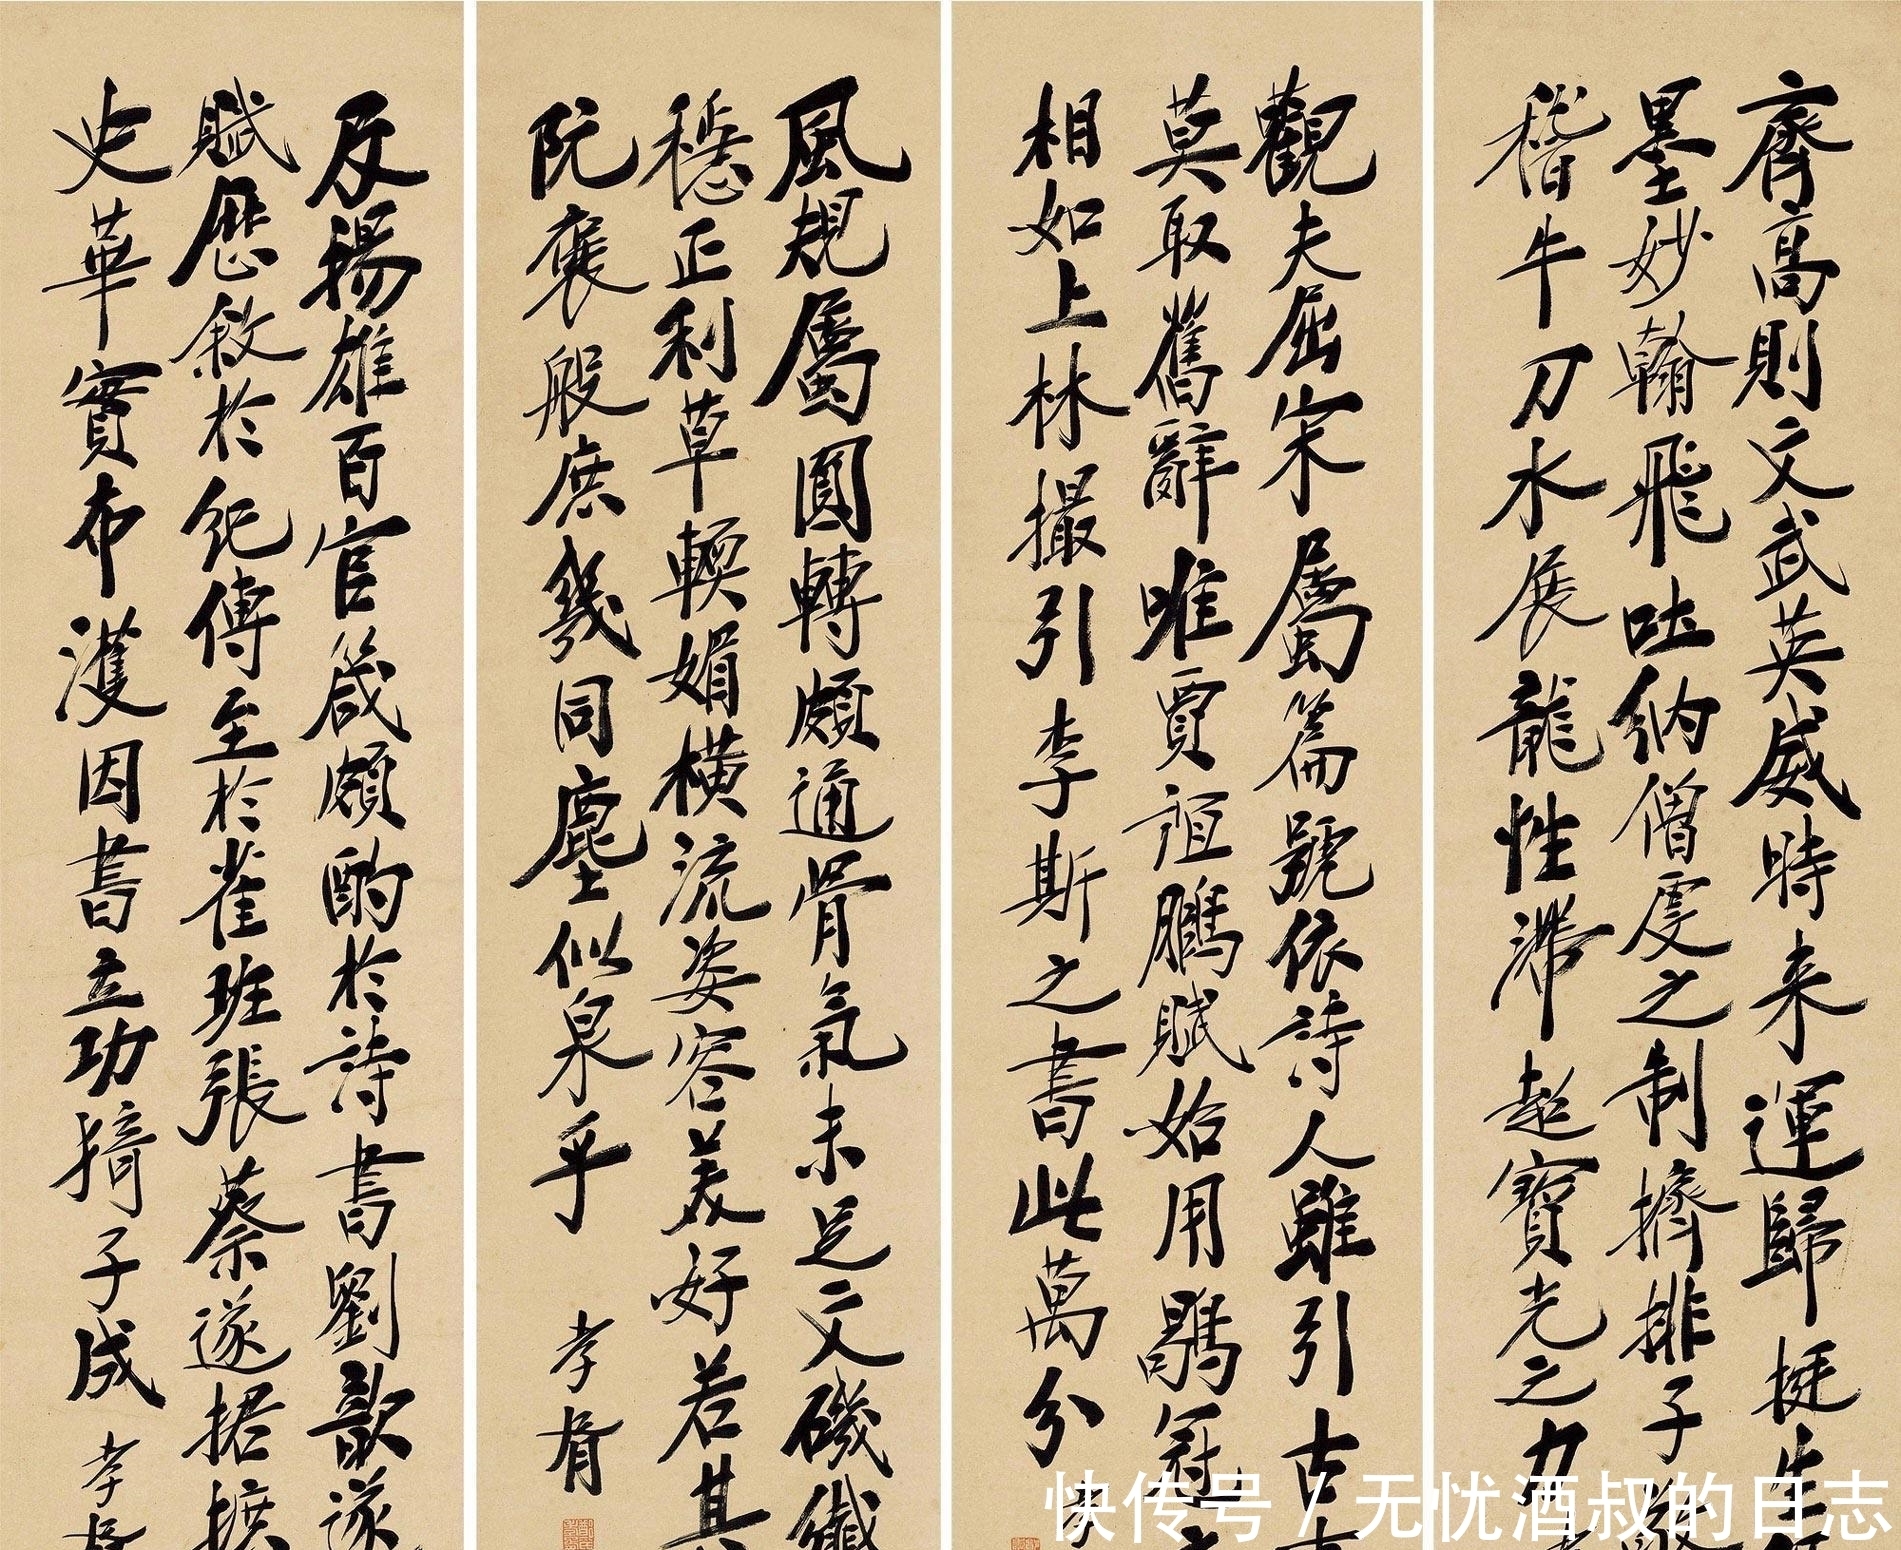 齊高則文武英威時来運歸挺生
墨妙翰飛吐納僧虔之制擠排子敬
稽牛刀水展龍性滯趑寶光之力
觀夫屈宋屬篇號依詩人雖引古
莫取舊辭唯賈誼鵬賦始用鶡冠之
相如上林撮引李斯之書此萬分
孝
風規屬圓轉頗通骨氣未足文磯纖
穩正利草輭媚橫流姿容美好若其
阮褒般庶幾同塵似泉乎
孝胥
及揚雄百官箴頗酌於詩書劉歆遂
賦歷敘於紀傳至於崔班張蔡遂捃摭
史華實布濩因書立功猗子成
孝胥
快传号 / 无忧酒叔的日志